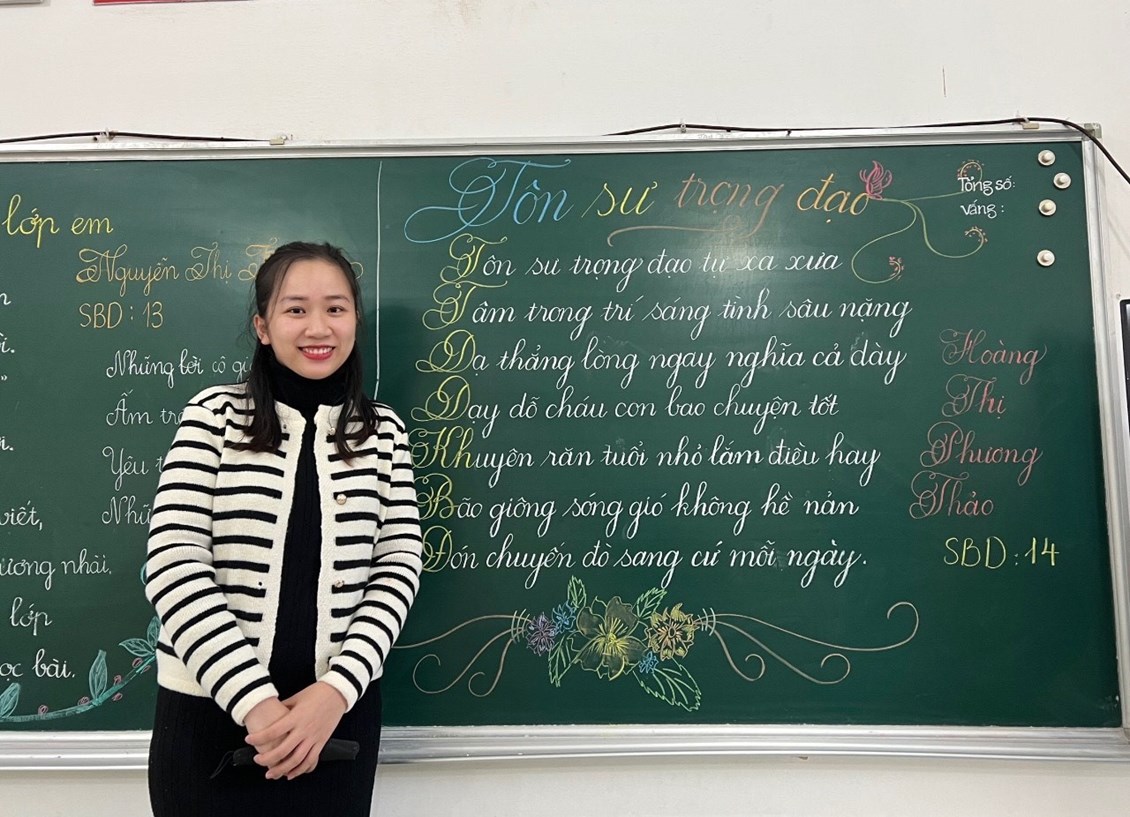 lớp em
Nguyễn Thị
SBD: 13
Những lời cô
Ấm
Yêu
viết,
hương nhài.
lớp
học bài.
Tôn sư trọng đạo
Tôn sư trọng đạo tự xa xưa
Tâm trong trí sáng tình sâu nặng
Dạ thẳng lòng ngay nghĩa cả dày
Dạy dỗ cháu con bao chuyện tốt
Khuyên răn tuổi nhỏ lắm điều hay
Bão giông sóng gió không hề nản
Đón chuyến đò sang cứ mỗi ngày.
Tổng số:
vắng:
Hoàng
Thị
Phương
Thảo
SBD: 14